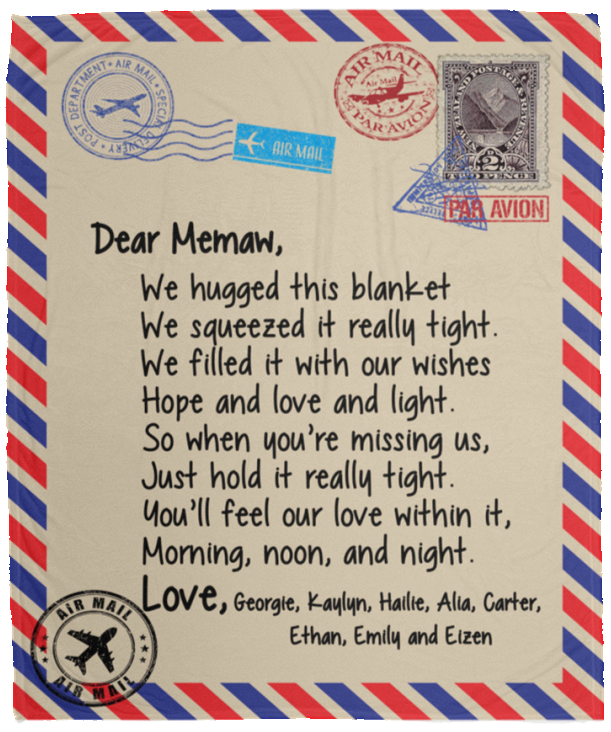 POST DEPARTMENT • AIR MAIL • SPECIAL DELIVERY •
AIR MAIL
AIR MAIL
Air Mail
PAR AVION
TWO PENCE
2
PAR AVION
Dear Memaw,
We hugged this blanket
We squeezed it really tight.
We filled it with our wishes
Hope and love and light.
So when you're missing us,
Just hold it really tight.
You'll feel our love within it,
Morning, noon, and night.
Love, Georgie, Kaylyn, Hailie, Alia, Carter,
Ethan, Emily and Eizen
AIR MAIL
AIR MAIL